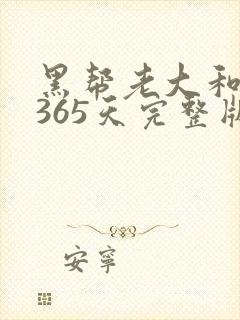 黑帮老大和
365天完整版
安寧